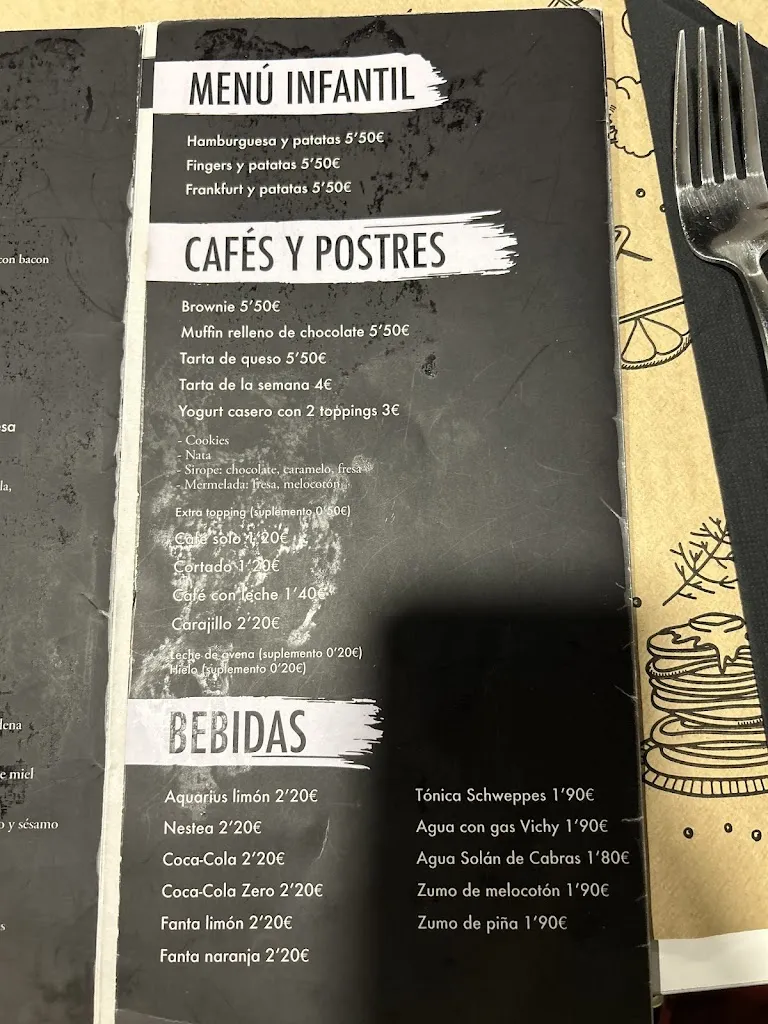 con bacon
esa
la,
lena
e miel
o y sésamo
s
MENÚ INFANTIL
Hamburguesa y patatas 5'50€
Fingers y patatas 5'50€
Frankfurt y patatas 5'50€
CAFÉS Y POSTRES
Brownie 5'50€
Muffin relleno de chocolate 5'50€
Tarta de queso 5'50€
Tarta de la semana 4€
Yogurt casero con 2 toppings 3€
- Cookies
- Nata
- Sirope: chocolate, caramelo, fresa
- Mermelada: fresa, melocotón
Extra topping (suplemento 0'50€)
Café solo 1'20€
Cortado 1'20€
Café con leche 1'40€
Carajillo 2'20€
Leche de avena (suplemento 0'20€)
Hielo (suplemento 0'20€)
BEBIDAS
Aquarius limón 2'20€
Nestea 2'20€
Coca-Cola 2'20€
Coca-Cola Zero 2'20€
Fanta limón 2'20€
Fanta naranja 2'20€
Tónica Schweppes 1'90€
Agua con gas Vichy 1'90€
Agua Solán de Cabras 1'80€
Zumo de melocotón 1'90€
Zumo de piña 1'90€